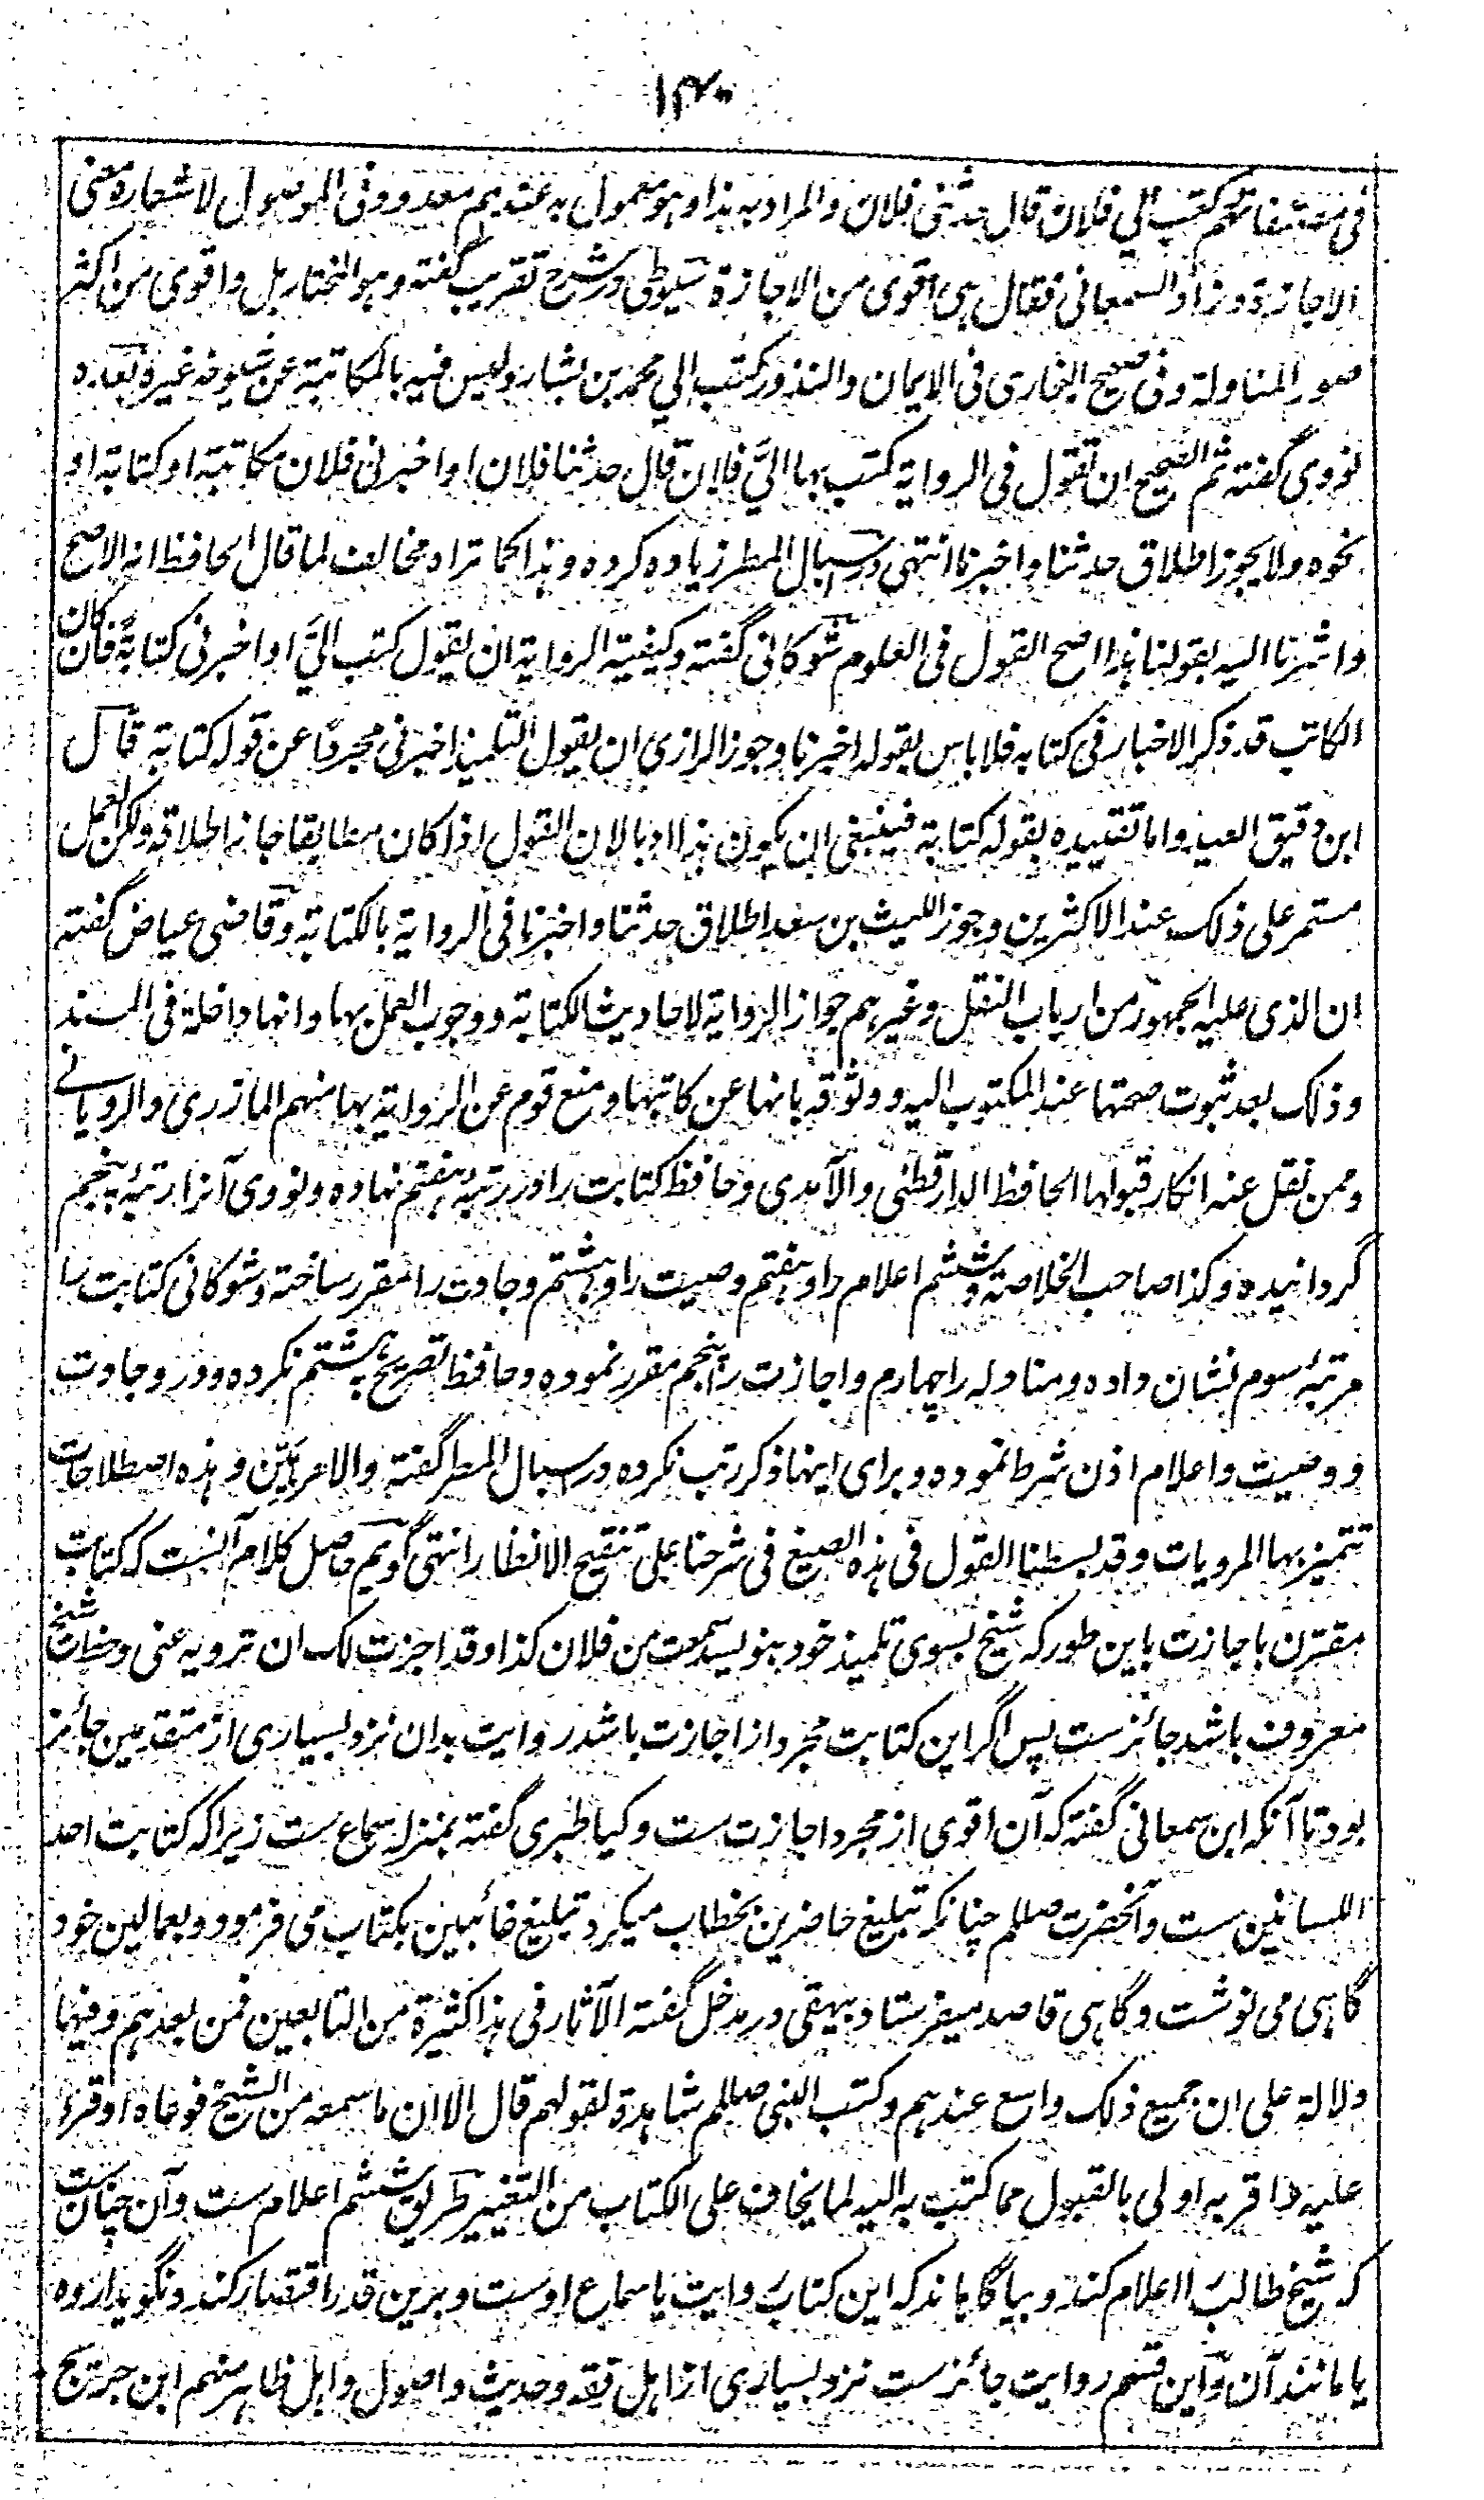 ۱۴۰
فی مصنفاتهم کتب الی فلان قال حدثنی فلان والمراد به هذا وهو معمول به عندهم معدود فی الموصول لاشعاره معنی
الاجازة وزاد السمعانی فقال هی اقوی من الاجازة سیوطی در شرح تقریب گفته وهو المختار بل واقوی من اکثر
صور المناولة وفی صحیح البخاری فی الایمان والنذور کتب الی محمد بن بشار ولیس فیه بالمکاتبة عن شیوخه غیره بعده
نووی گفته ثم الصحیح ان تقول فی الروایة کتب بها الیّ فلان قال حدثنا فلان او اخبرنی فلان مکاتبة او کتابة او
نحوه ولا یجوز اطلاق حدثنا واخبرنا انتهی در اسبال المطر زیاده کرده وهذا کما تراه مخالف لما قال الحافظ انه الاصح
واشرنا الیه بقولنا هذا اصح القول فی العلوم شوکانی گفته وکیفیة الروایة ان یقول کتب الیّ او اخبرنی کتابةً فان کان
الکاتب قد ذکر الاخبار فی کتابه فلا باس بقوله اخبرنا وجوز الرازی ان یقول التلمیذ اخبرنی مجردًا عن قوله کتابة قال
ابن دقیق العید واما تقییده بقوله کتابة فینبغی ان یکون هذا ادبا لان القول اذا کان مطابقا جاز اطلاقه ولکن العمل
مستمر علی ذلک عند الاکثرین وجوز اللیث بن سعد اطلاق حدثنا واخبرنا فی الروایة بالکتابة وقاضی عیاض گفته
ان الذی علیه الجمهور من ارباب النقل وغیرهم جواز الروایة لاحادیث الکتابة ووجوب العمل بها وانها داخلة فی المسند
وذلک بعد ثبوت صحتها عند المکتوب الیه ووثوقه بانها عن کاتبها ومنع قوم عن الروایة بها منهم المازری والرویانے
وممن نقل عنه انکار قبولها الحافظ الدارقطنی والآمدی وحافظ کتابت را در رتبهٔ هفتم نهاده ونووی آنرا رتبهٔ پنجم
گردانیده وکذا صاحب الخلاصة وششم اعلام را وهفتم وصیت را وهشتم وجادت را مقرر ساخته وشوکانی کتابت را
مرتبهٔ سوم نشان داده ومناوله را چهارم واجازت را پنجم مقرر نموده وحافظ تصریح به هشتم نکرده ودر وجادت
ووصیت واعلام اذن شرط نموده وبرای اینها ذکر رتب نکرده در اسبال المطر گفته والامر هین وهذه اصطلاحات
تتمیز بها المرویات وقد بسطنا القول فی هذه الصیغ فی شرحنا علی تنقیح الانظار انتهی گویم حاصل کلام آنست که کتابت
مقترن باجازت باین طور که شیخ بسوی تلمیذ خود بنویسد سمعت من فلان کذا وقد اجزت لک ان ترویه عنی وخط آن شیخ
معروف باشد جائز ست پس اگر این کتابت مجرد از اجازت باشد روایت بدان نزد بسیاری از متقدمین جائز
بود تا آنکه ابن سمعانی گفته که آن اقوی از مجرد اجازت ست وکیا طبری گفته بمنزله سماع ست زیرا که کتابت احد
اللسانین ست وآنحضرت صللم چنانکه تبلیغ حاضرین بخطاب میکرد تبلیغ غائبین بکتاب می فرمود وبعاملین خود
گاهی می نوشت وگاهی قاصد میفرستاد بیهقی در مدخل گفته الآثار فی هذا کثیرة من التابعین فمن بعدهم وفیها
دلالة علی ان جمیع ذلک واسع عندهم وکتب النبی صللم شاهدة لقولهم قال الا ان ما سمعه من الشیخ فوعاه او قرء
علیه واقر به اولی بالقبول مما کتب به الیه لما یخاف علی الکتاب من التغییر طریق ششم اعلام ست وآن چنان ست
که شیخ طالب را اعلام کند وبیاگاهاند که این کتاب روایت یا سماع اوست وبرین قدر اقتصار کند ونگوید اروه
یا مانند آن واین قسم روایت جائز ست نزد بسیاری از اهل فقه وحدیث واصول واهل ظاهر منهم ابن جریج